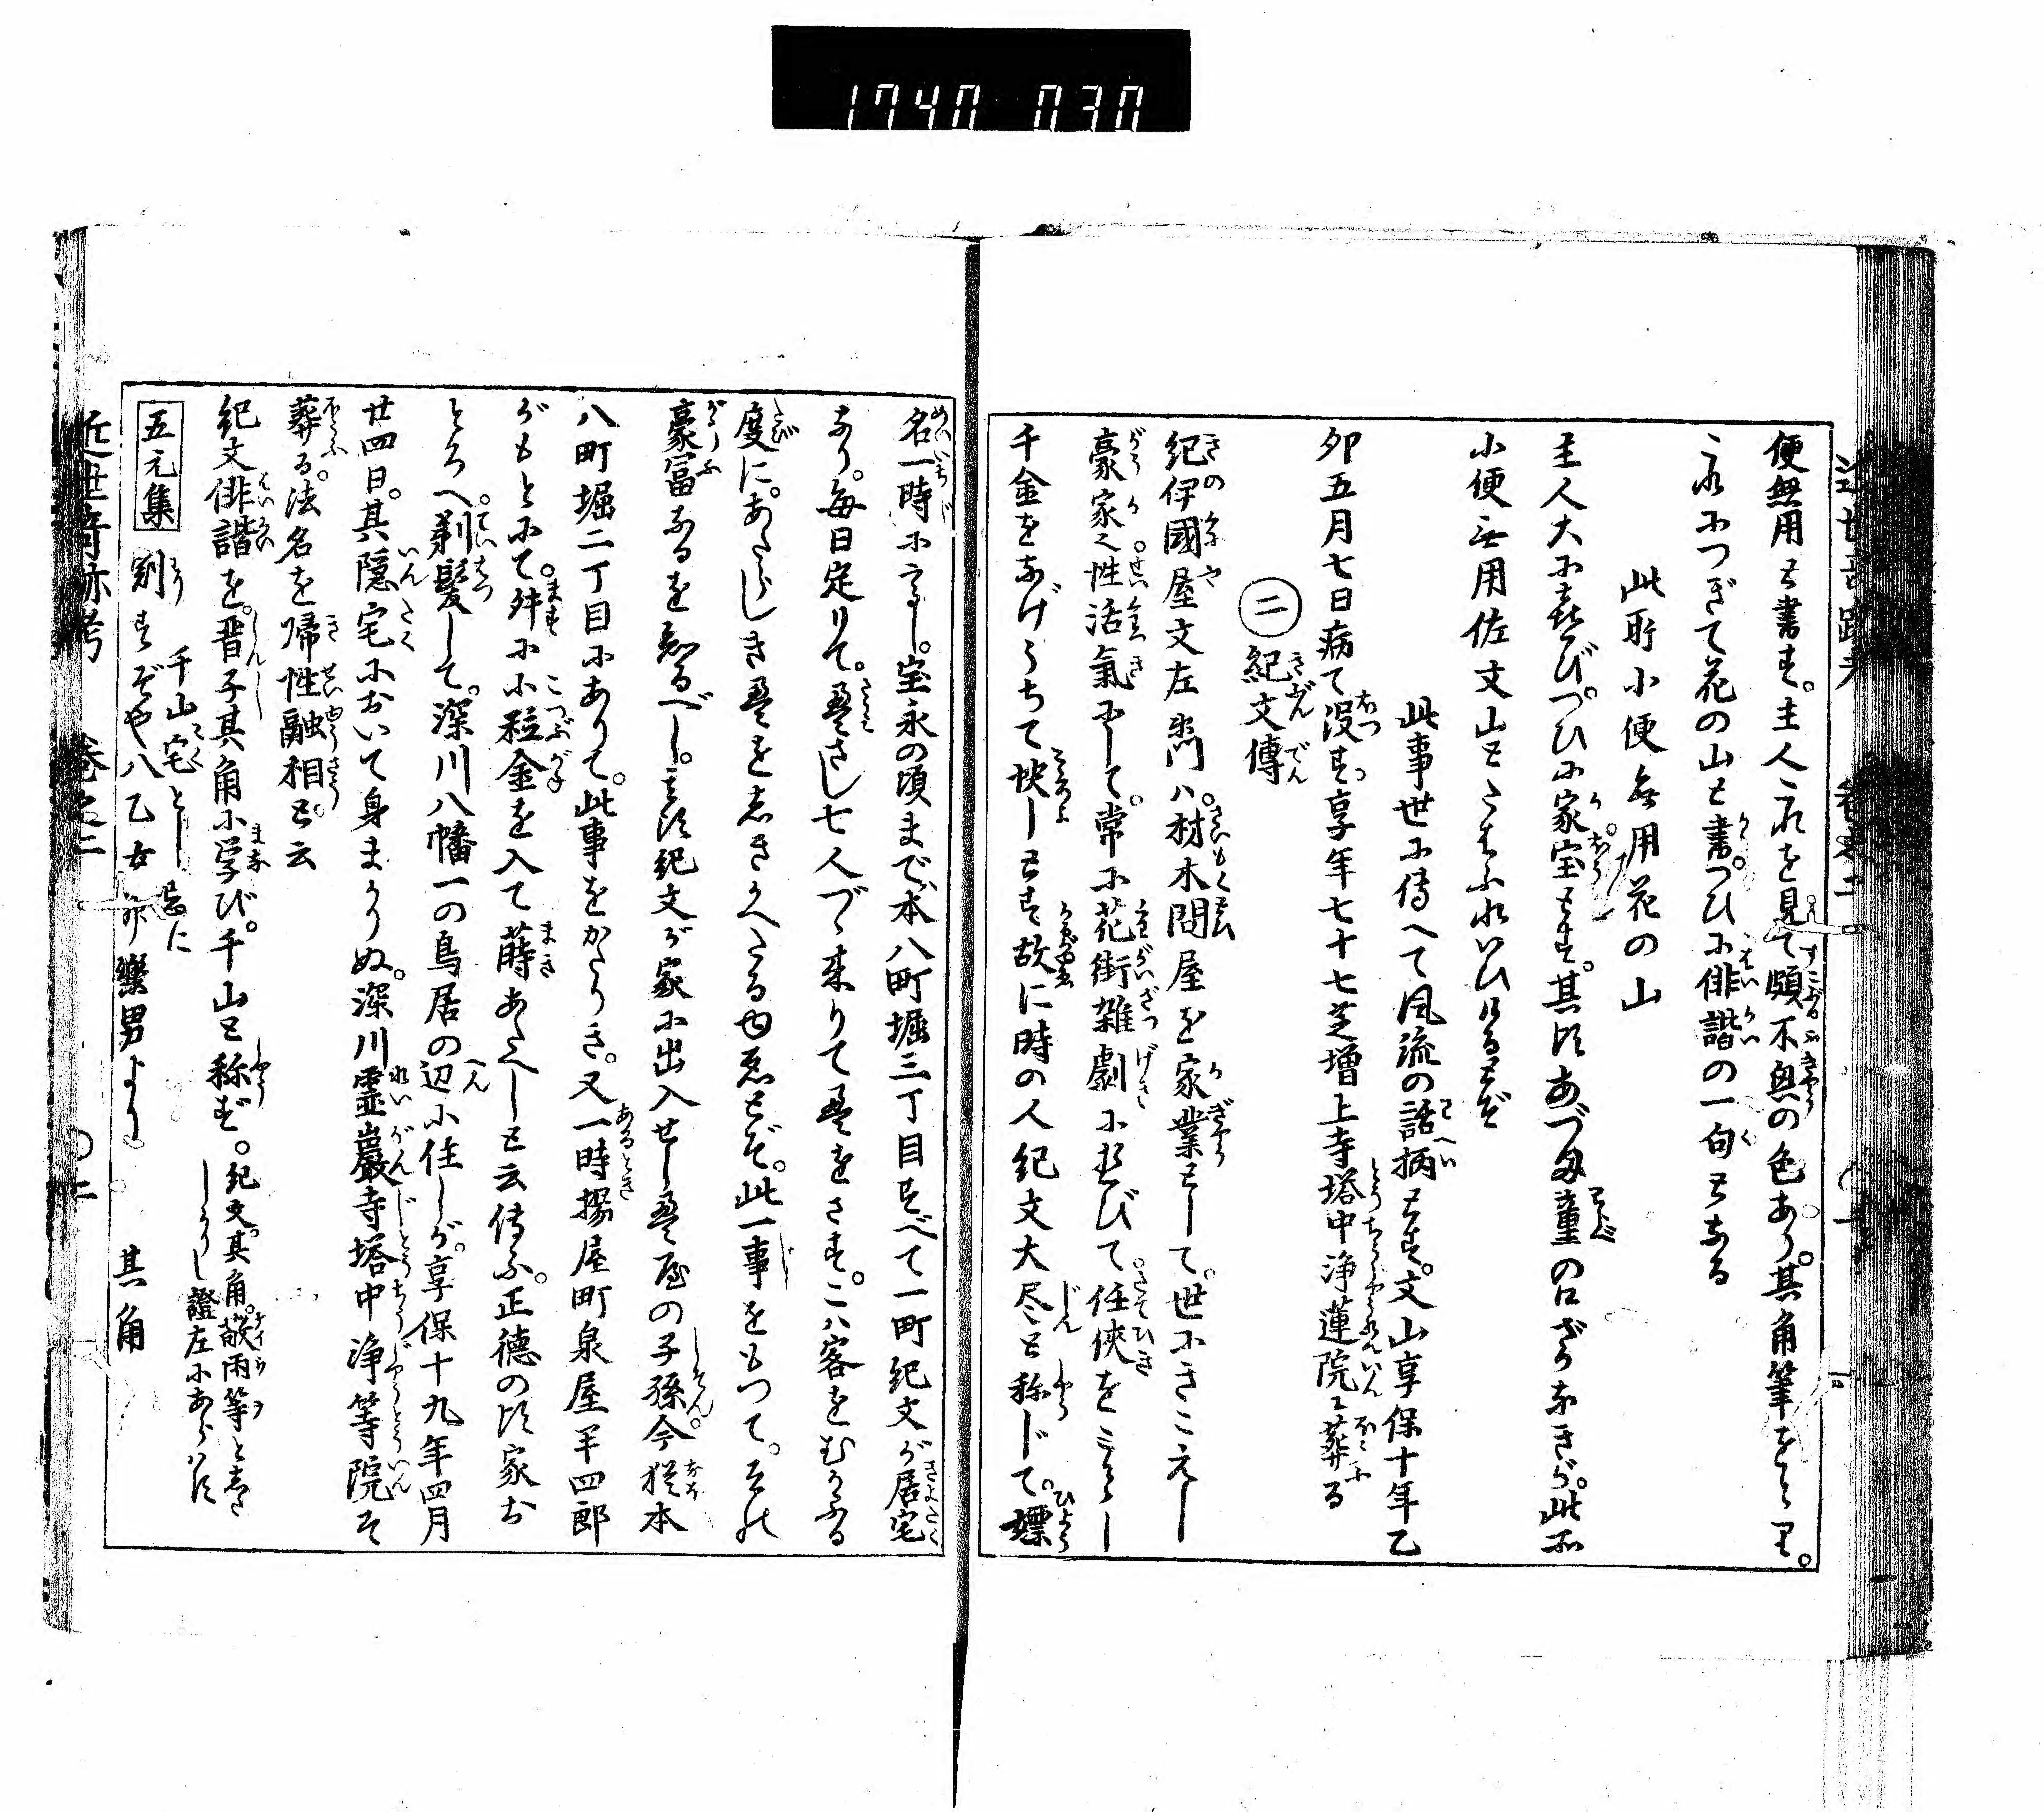 1740 030
便無用と書す。主人これを見て頗不興の色あり。其角筆をとりて。
これにつぎて花の山と書。つひに俳諧の一句となる
此所小便無用花の山
主人大に喜び。つひに家宝とす。其頃あづま童の口ずさみなきが。此所
小便無用佐文山とたはふれいひけるとぞ
此事世に傳へて風流の話柄とす。文山享保十年乙
卯五月七日病て没す享年七十七芝増上寺塔中浄蓮院に葬る
二 紀文傳
紀伊國屋文左衛門ハ。材木問屋を家業として。世にきこえし
豪家也。性活氣にして。常に花街雑劇に遊びて。任侠をこととし
千金をなげうちて快しとす故に時の人紀文大尽と称じて。嫖
名一時に高し。宝永の頃まで、本八町堀三丁目すべて一町紀文が居宅
なり。毎日定りて。畳さし七人づゝ来りて畳をさす。こハ客をむかふる
度に。あたらしき畳をしきかへたるゆゑとぞ。此一事をもつて。その
豪富なるを知るべし。その頃紀文が家に出入せし畳屋の子孫今猶本
八町堀二丁目にありて。此事をかたりき。又一時揚屋町泉屋半四郎
がもとにて。舛に小粒金を入て蒔あたへしと云傳ふ。正徳の頃家お
とろへ剃髪して。深川八幡一の鳥居の辺に住しが。享保十九年四月
廿四日。其隠宅において身まかりぬ。深川霊巖寺塔中浄等院に
葬る。法名を帰性融相と云
紀文俳諧を。晋子其角に学び。千山と称ず。紀文。其角。敲雨等としたしかりし證左にあらはす
五元集 千山宅とし忌に
割すぞや八乙女神樂男より 其角
近世奇跡考 巻之二